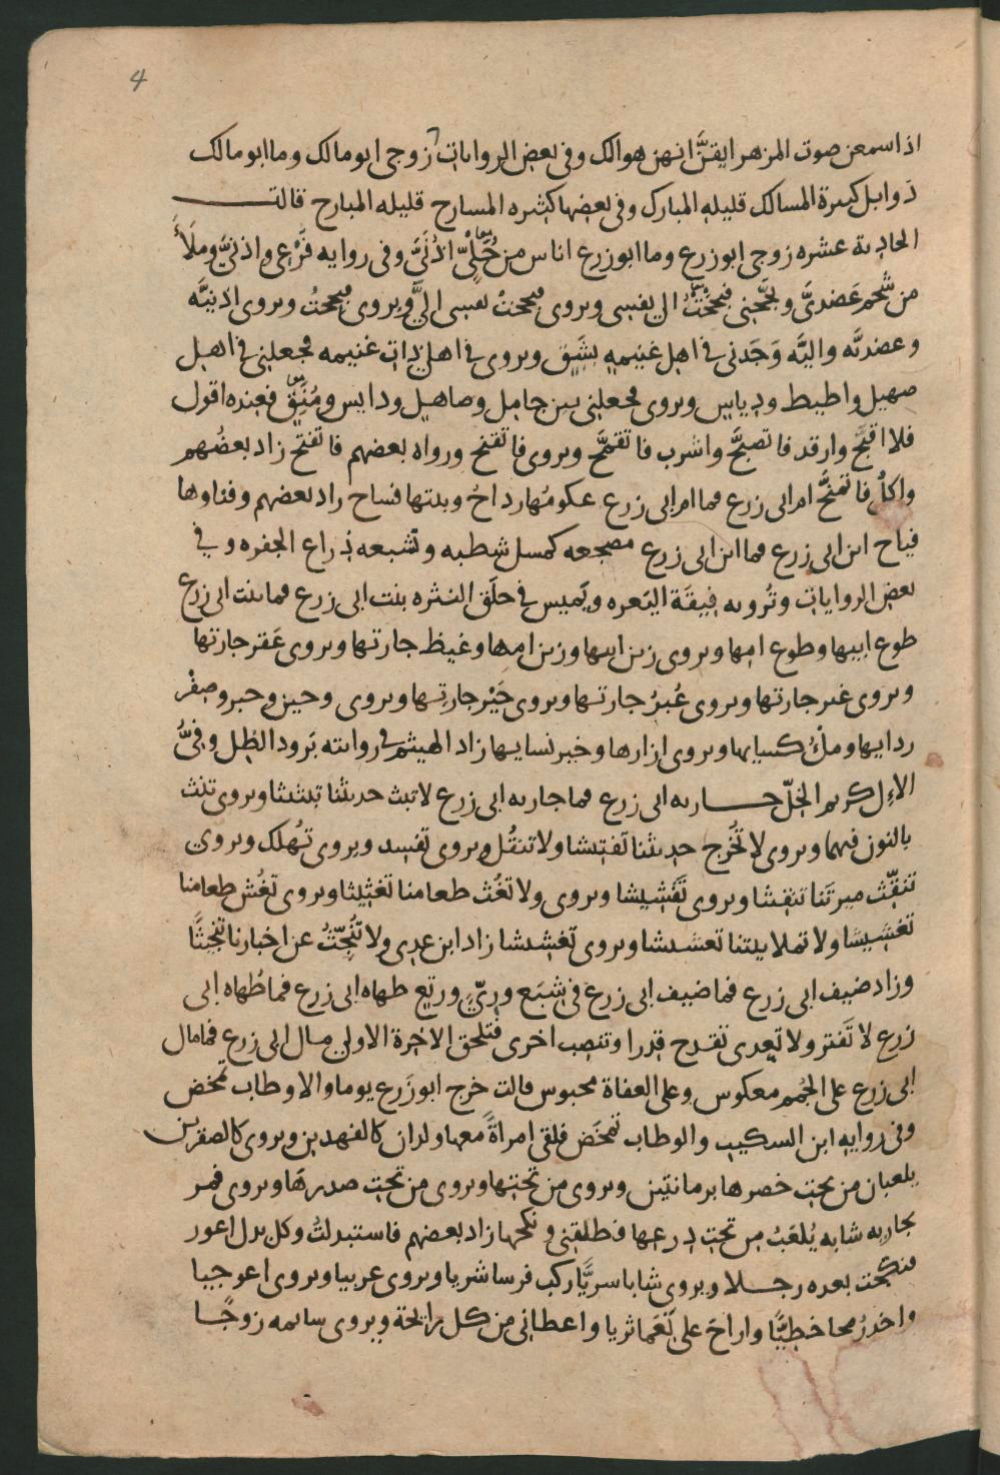 4
اذا سمعن صوت المزهر ايقنَّ انهن هوالك وفى بعض الروايات زوجى ابو مالك وما ابو مالك
ذو ابل كثيرة المسالك قليله المبارك وفى بعضها كثيره المسارح قليله المبارح قالت
الحادية عشره زوجى ابو زرع وما ابو زرع اناس من حُلِيّ اذُنَيَّ وفى روايه فَرْعى واذنيَّ وملَأَ
من شحم عَضديَّ وبجَّحنى فبجَحَتْ الى نفسى ويروى فبجحت نفسى اليَّ ويروى فبجحتُ ويروى اذنيَّه
وعضديَّه واليَّه وَجَدنى فى اهل غنيمه بشِق ويروى فى اهل ذات غنيمه فجعلنى فى اهل
صهيل واطيط ودياس ويروى فجعلنى بين جامل وصاهل ودايس ومُنَق فعنده اقول
فلا اقبَّح وارقد فاتصبَّح واشرب فاتقمَّح ويروى فاتقنح ورواه بعضهم فاتفتح زاد بعضُهم
واكلُ فاتمنَّح ام ابى زرع فما ام ابى زرع عكومُها رداحُ وبيتها فساح زاد بعضهم وفناوها
فياح ابن ابى زرع فما ابن ابى زرع مضجعه كمسل شطبه وتشبعه ذراع الجفره وفى
بعض الروايات وتُرويه فِيقَة اليَعره ويَميس فى حلَق النثره بنت ابى زرع فما بنت ابى زرع
طوع ابيها وطوع امها ويروى زين ابيها وزين امها وغيظ جارتها ويروى عَقر جارتها
ويروى غير جارتها ويروى عُبرُ جارتها ويروى حَيْر جارتها ويروى وحين وحبر وصِفْر
ردايها وملْءُ كسايها ويروى ازارها وخير نسايها زاد الهيثم فى روايته بَرود الظل وفىُّ
الاِل كريم الخلّ جاريه ابى زرع فما جاريه ابى زرع لا تبث حديثنا تبثيثا ويروى تنث
بالنون فيهما ويروى لا تُخرج حديثنا تفتيشا ولا تنقُل ويروى تفسد ويروى تُهلك ويروى
تنقّث ميرتَنا تنقثا ويروى تَقْشيشا ويروى ولا تغُث طعامنا تغثيثا ويروى تغُش طعامنا
تغشيشا ولا تملا بيتنا تعشيشا ويروى تغشيشا زاد ابن عدى ولا تُنجّثُ عن اخبارنا تنجيثًا
وزاد ضيف ابى زرع فما ضيف ابى زرع فى شبَع وريّ ورتع طهاه ابى زرع فما طُهاه ابى
زرع لا تَفتر ولا تعدى تقدح قدرا وتنصب اخرى فتلحق الاخرة الاولى مال ابى زرع فما مال
ابى زرع على الجُمم معكوس وعلى العفاة محبوس قالت خرج ابو زَرع يوما والاوطاب تمخض
وفى روايه ابن السكيت والوطاب تمخَض فلقى امراةً معها ولدان كالفهدين ويروى كالصقرين
يلعبان من تحت خصرها برمانتين ويروى من تحتها ويروى من تحت صدرهَا ويروى فمر
بجاريه شابه يُلعَبُ من تحت درعها فطلقنى ونكحها زاد بعضهم فاستبدلتُ وكل بدل اعور
فنكحت بعده رجلا ويروى شابا سريَّا ركب فرسا شريا ويروى عربيا ويروى اعوجيا
واخذ رُمحا خطيًّا واراحَ على نعَما ثريا واعطانى من كل رايحة ويروى سايمه زوجًا